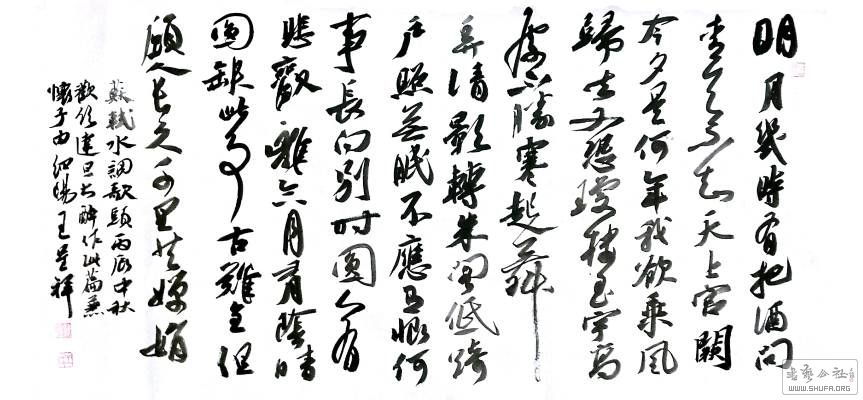 明月幾時有把酒問
青天不知天上宮闕
今夕是何年我欲乘風
歸去又恐瓊樓玉宇高
處不勝寒起舞
弄清影轉朱閣低綺
戶照無眠不應有恨何
事長向別時圓人有
悲歡離合月有陰晴
圓缺此事古難全但
願人長久千里共嬋娟
蘇軾水調歌頭丙辰中秋
歡飲達旦大醉作此篇兼
懷子由細陽王呈祥
书艺公社
WWW.SHUFA.ORG